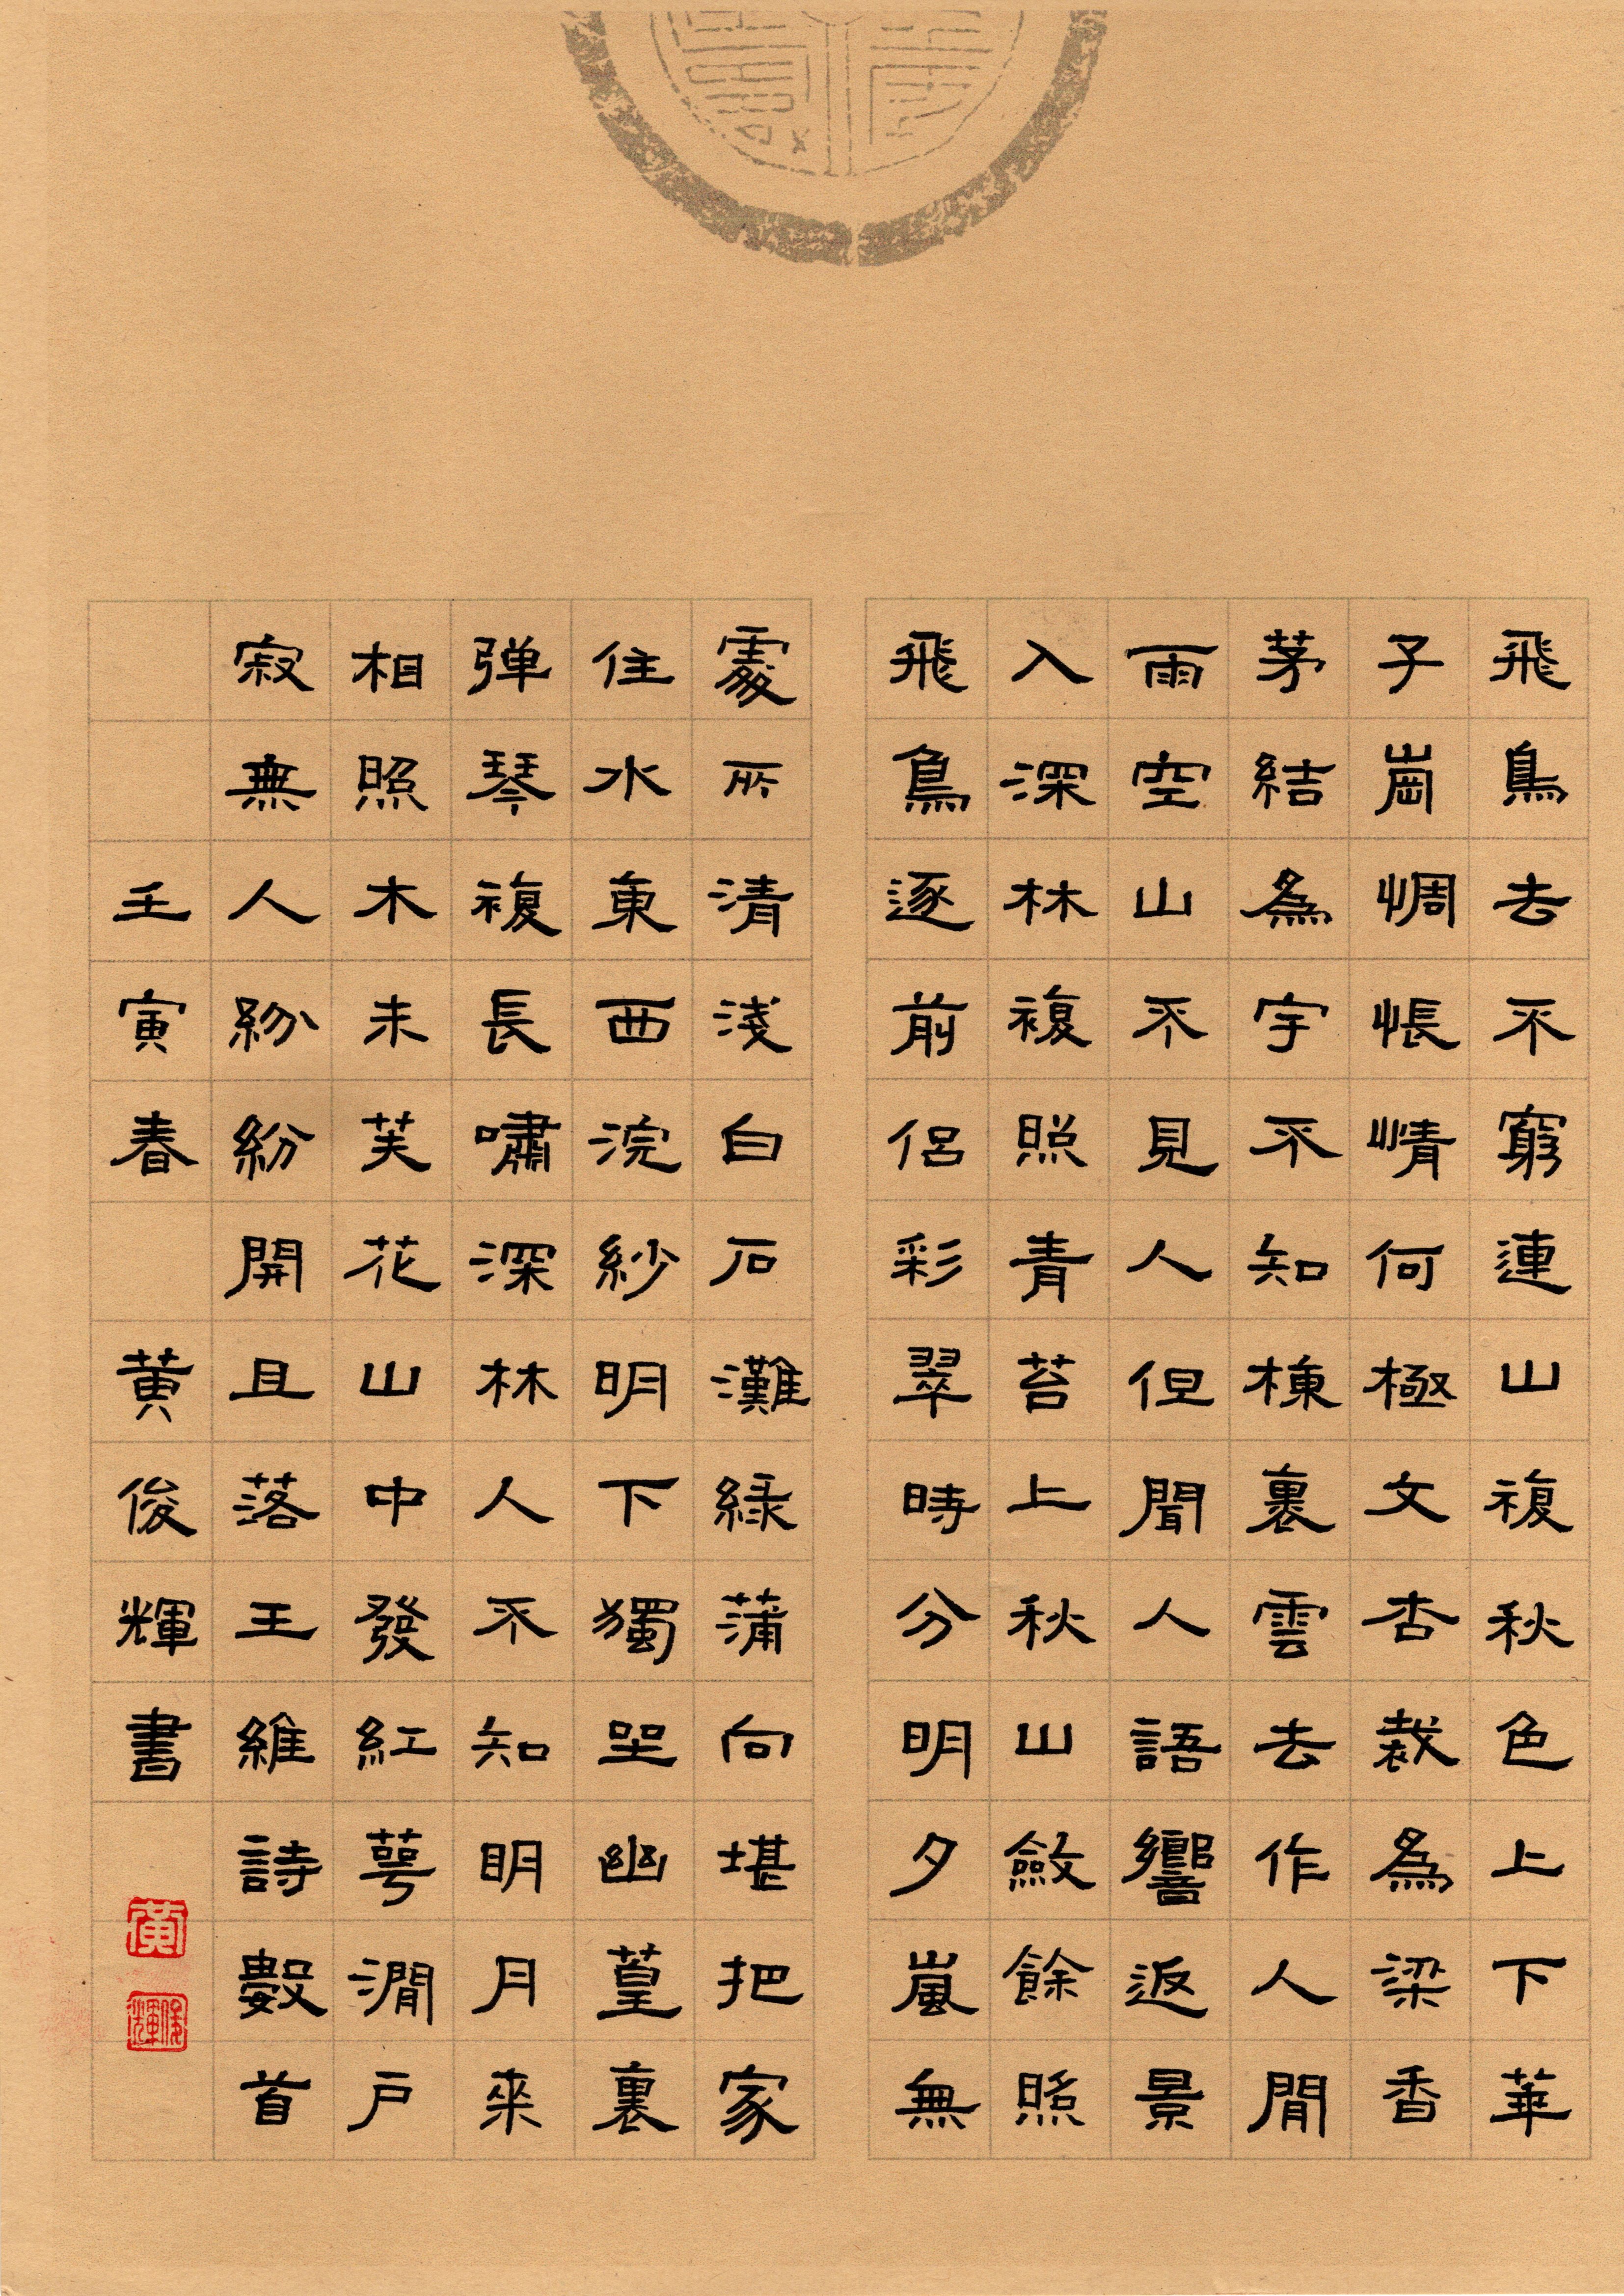 飛鳥去不窮連山複秋色上下華
子崗惆悵情何極文杏裁為梁香
茅結為宇不知棟裏雲去作人間
雨空山不見人但聞人語響返景
入深林複照青苔上秋山斂餘照
飛鳥逐前侶彩翠時分明夕嵐無
處所清淺白石灘綠蒲向堪把家
住水東西浣紗明月下獨坐幽篁裏
弹琴複長嘯深林人不知明月來
相照木末芙花山中發紅萼澗戶
寂無人紛紛開且落王維詩數首
壬寅春 黄俊輝書
黄
俊輝